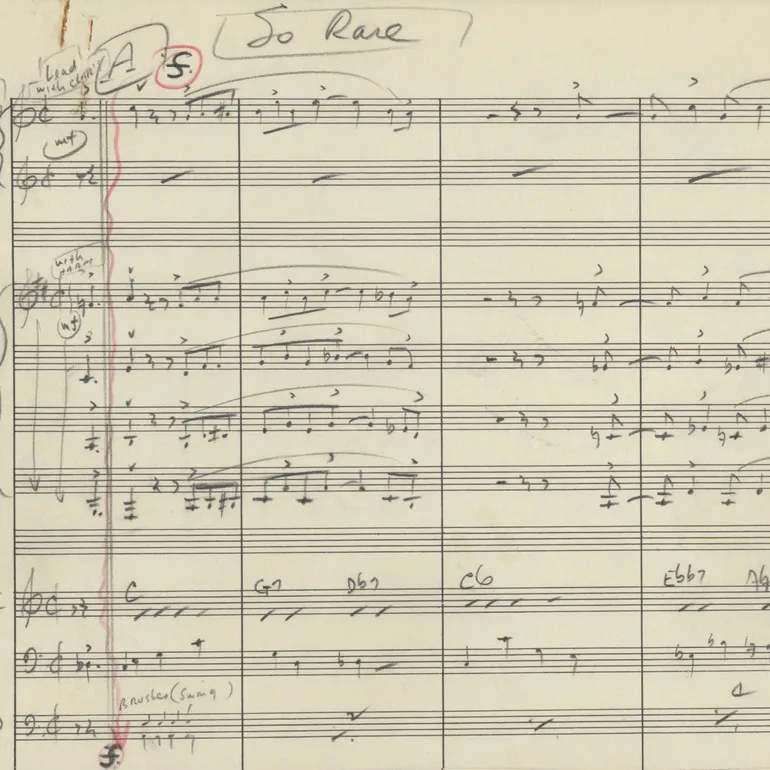 So Rare
A
f.
Lead
with clar.
mf
with
mf
C G7 Db7 C6 Ebb7
Brushes (Swing)
f.